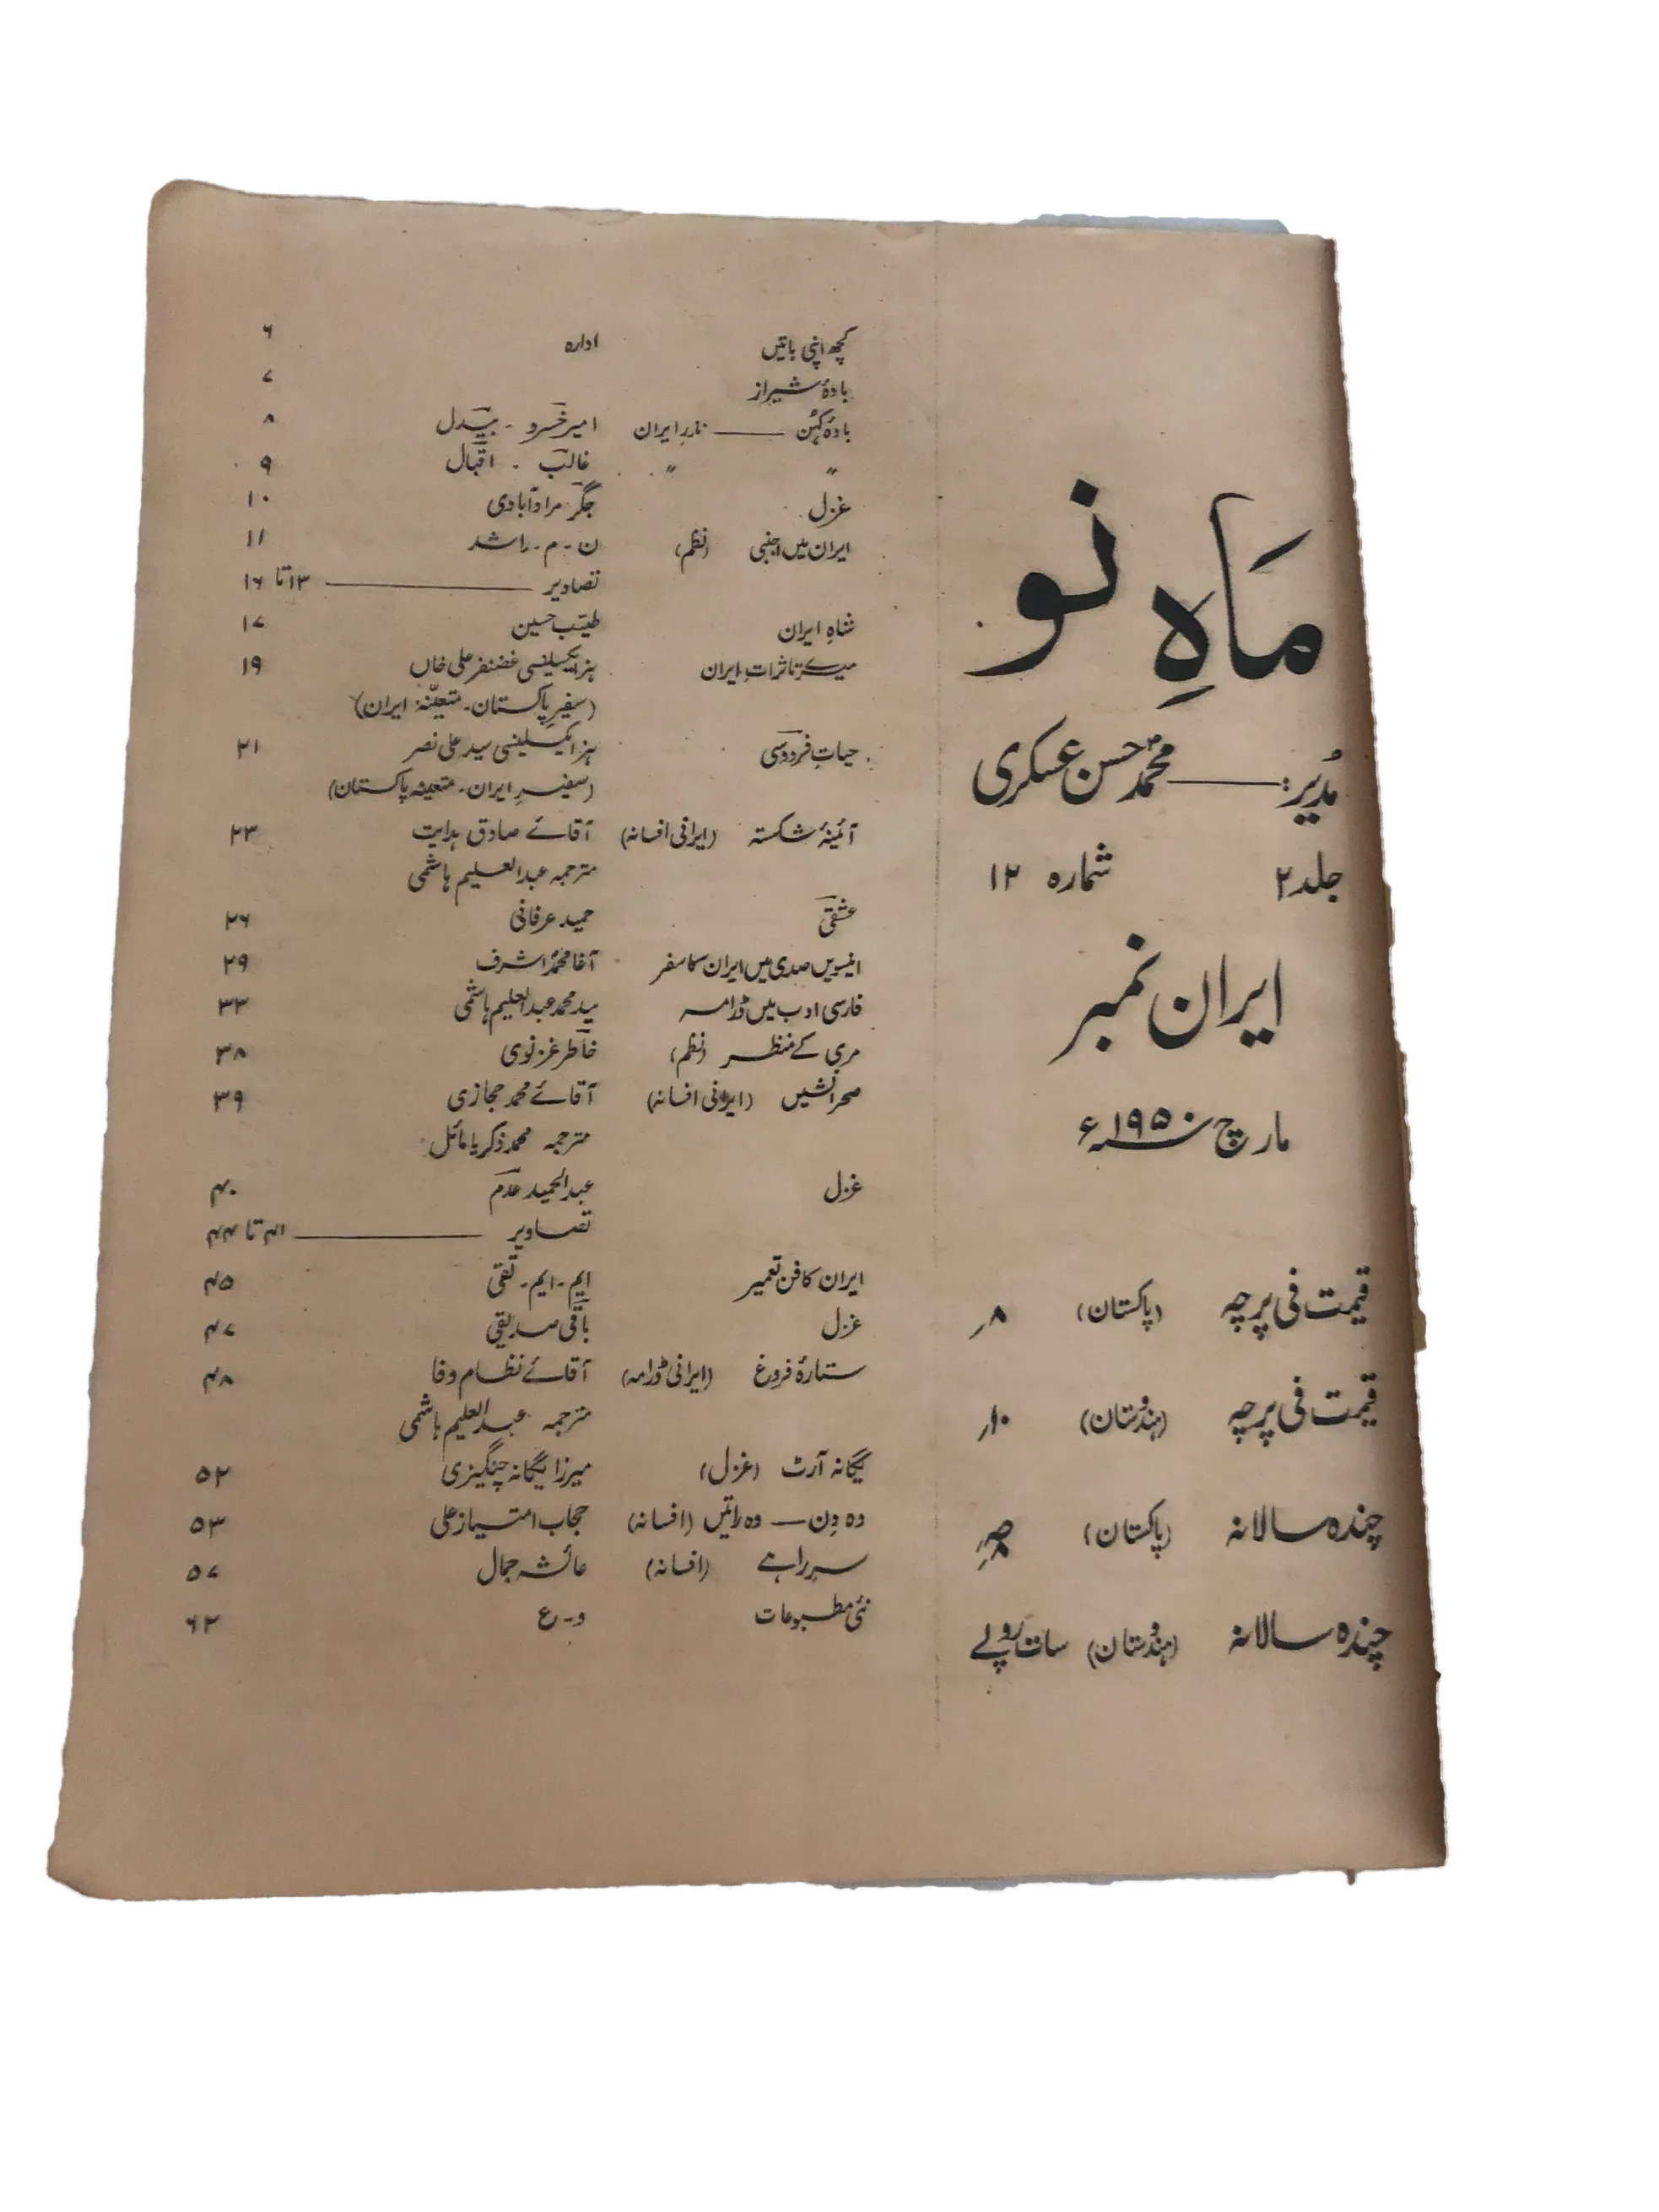 ماہِ نو
مُدیر: ـــــــ محمد حسن عسکری
جلد ۲ شمارہ ۱۲
ایران نمبر
مارچ ۱۹۵۰ء
قیمت فی پرچہ (پاکستان) ۸؍
قیمت فی پرچہ (ہندوستان) ۱۰؍
چندہ سالانہ (پاکستان)
چندہ سالانہ (ہندوستان) سات روپے
کچھ اپنی باتیں ادارہ ۶
بادۂ شیراز ۷
بادۂ کہن ـــــــ نذرِ ایران امیر خسرو ۔ بیدل ۸
〃 〃 غالب ۔ اقبال ۹
غزل جگر مرادآبادی ۱۰
ایران میں اجنبی (نظم) ن ۔ م ۔ راشد ۱۱
تصاویر ـــــــ ۱۳ تا ۱۶
شاہِ ایران طیب حسین ۱۷
میرے تاثراتِ ایران ہز ایکسیلنسی غضنفر علی خاں ۱۹
(سفیرِ پاکستان ۔ متعینّہ ایران)
حیاتِ فردوسی ہز ایکسیلنسی سید علی نصر ۲۱
(سفیرِ ایران ۔ متعینہ پاکستان)
آئینۂ شکستہ (ایرانی افسانہ) آقائے صادق ہدایت ۲۳
مترجمہ عبدالعلیم ہاشمی
عشقی حمید عرفانی ۲۶
انیسویں صدی میں ایران کا سفر آغا محمد اشرف ۲۹
فارسی ادب میں ڈرامہ سید محمد عبدالعلیم ہاشمی ۳۳
مری کے منظر (نظم) خاطر غزنوی ۳۸
صحرا نشیں (ایرانی افسانہ) آقائے محمد حجازی ۳۹
مترجمہ محمد ذکریا مائل
غزل عبدالحمید عدم ۴۰
تصاویر ـــــــ ۴۱ تا ۴۴
ایران کا فن تعمیر ایم ۔ ایم ۔ تقی ۴۵
غزل باقی صدیقی ۴۷
ستارۂ فروغ (ایرانی ڈرامہ) آقائے نظام وفا ۴۸
مترجمہ عبدالعلیم ہاشمی
یگانہ آرٹ (غزل) میرزا یگانہ چنگیزی ۵۲
وہ دن ـــ وہ راتیں (افسانہ) حجاب امتیاز علی ۵۳
سر راہے (افسانہ) عائشہ جمال ۵۷
نئی مطبوعات و ۔ ع ۶۲